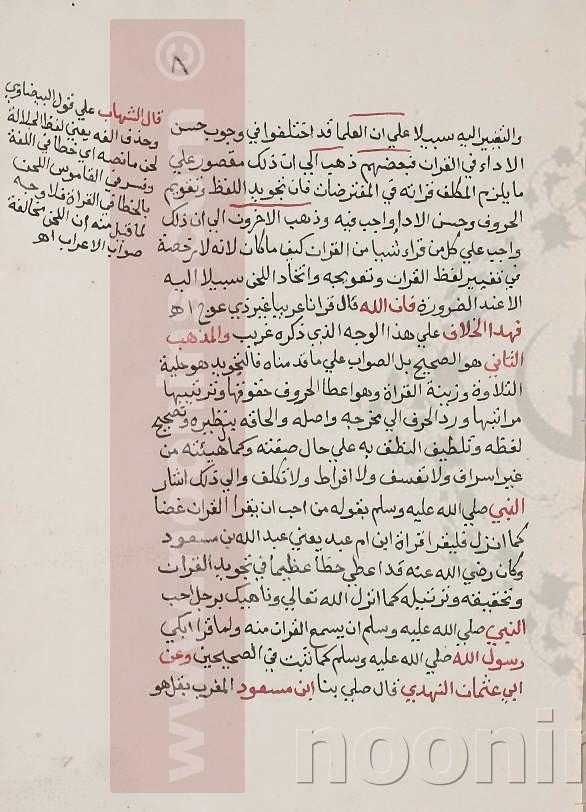 ٨
والتغيير اليه سبيلا علي ان العلما قد اختلفوا في وجوب حسن
الاداء في القران فبعضهم ذهب الي ان ذلك مقصور علي
ما يلزم المكلف قراته في المفترضات فان تجويد اللفظ وتقويم
الحروف وحسن الادا واجب فيه وذهب الاخرون الي ان ذلك
واجب علي كل من قراء شيا من القران كيف ما كان لانه لا رخصة
في تغيير لفظ القران وتعويجه واتخاد اللحن سبيلا اليه
الا عند الضرورة فان الله قال قرانا عربيا غير ذي عوج اه
فهدا الخلاف علي هذا الوجه الذي ذكره غريب والمذهب
الثاني هو الصحيح بل الصواب علي ما قدمناه فالتجويد هو حلية
التلاوة وزينة القراة وهو اعطا الحروف حقوقها وترتيبها
مراتبها ورد الحرف الي مخرجه واصله والحاقه بنظيره وتصحيح
لفظه وتلطيف النطق به علي حال صيغته وكمال هيئته من
غير اسراف ولا تعسف ولا افراط ولا تكلف والي ذلك اشار
النبي صلي الله عليه وسلم بقوله من احب ان يقرا القران غضا
كما انزل فليقرا قراة ابن ام عبد يعني عبد الله بن مسعود
وكان رضي الله عنه قد اعطي حظا عظيما في تجويد القرات
وتحقيقه وترتيله كما انزل الله تعالي وناهيك برجل احب
النبي صلي الله عليه وسلم ان يسمع القران منه ولما قرا ابكي
رسول الله صلي الله عليه وسلم كما ثبت في الصحيحين وعن
ابي عثمان النهدي قال صلي بنا ابن مسعود المغرب بقل هو
قال الشهاب علي قول البيضاوي
وحذف الفه يعني لفظ الجلالة
لحن ما نصه اي خطا في اللغة
وفسر في القاموس اللحن
بالخطا في القراة فلا وجه
لما قيل منه ان اللحن مخالفة
صواب الاعراب اه
noonin